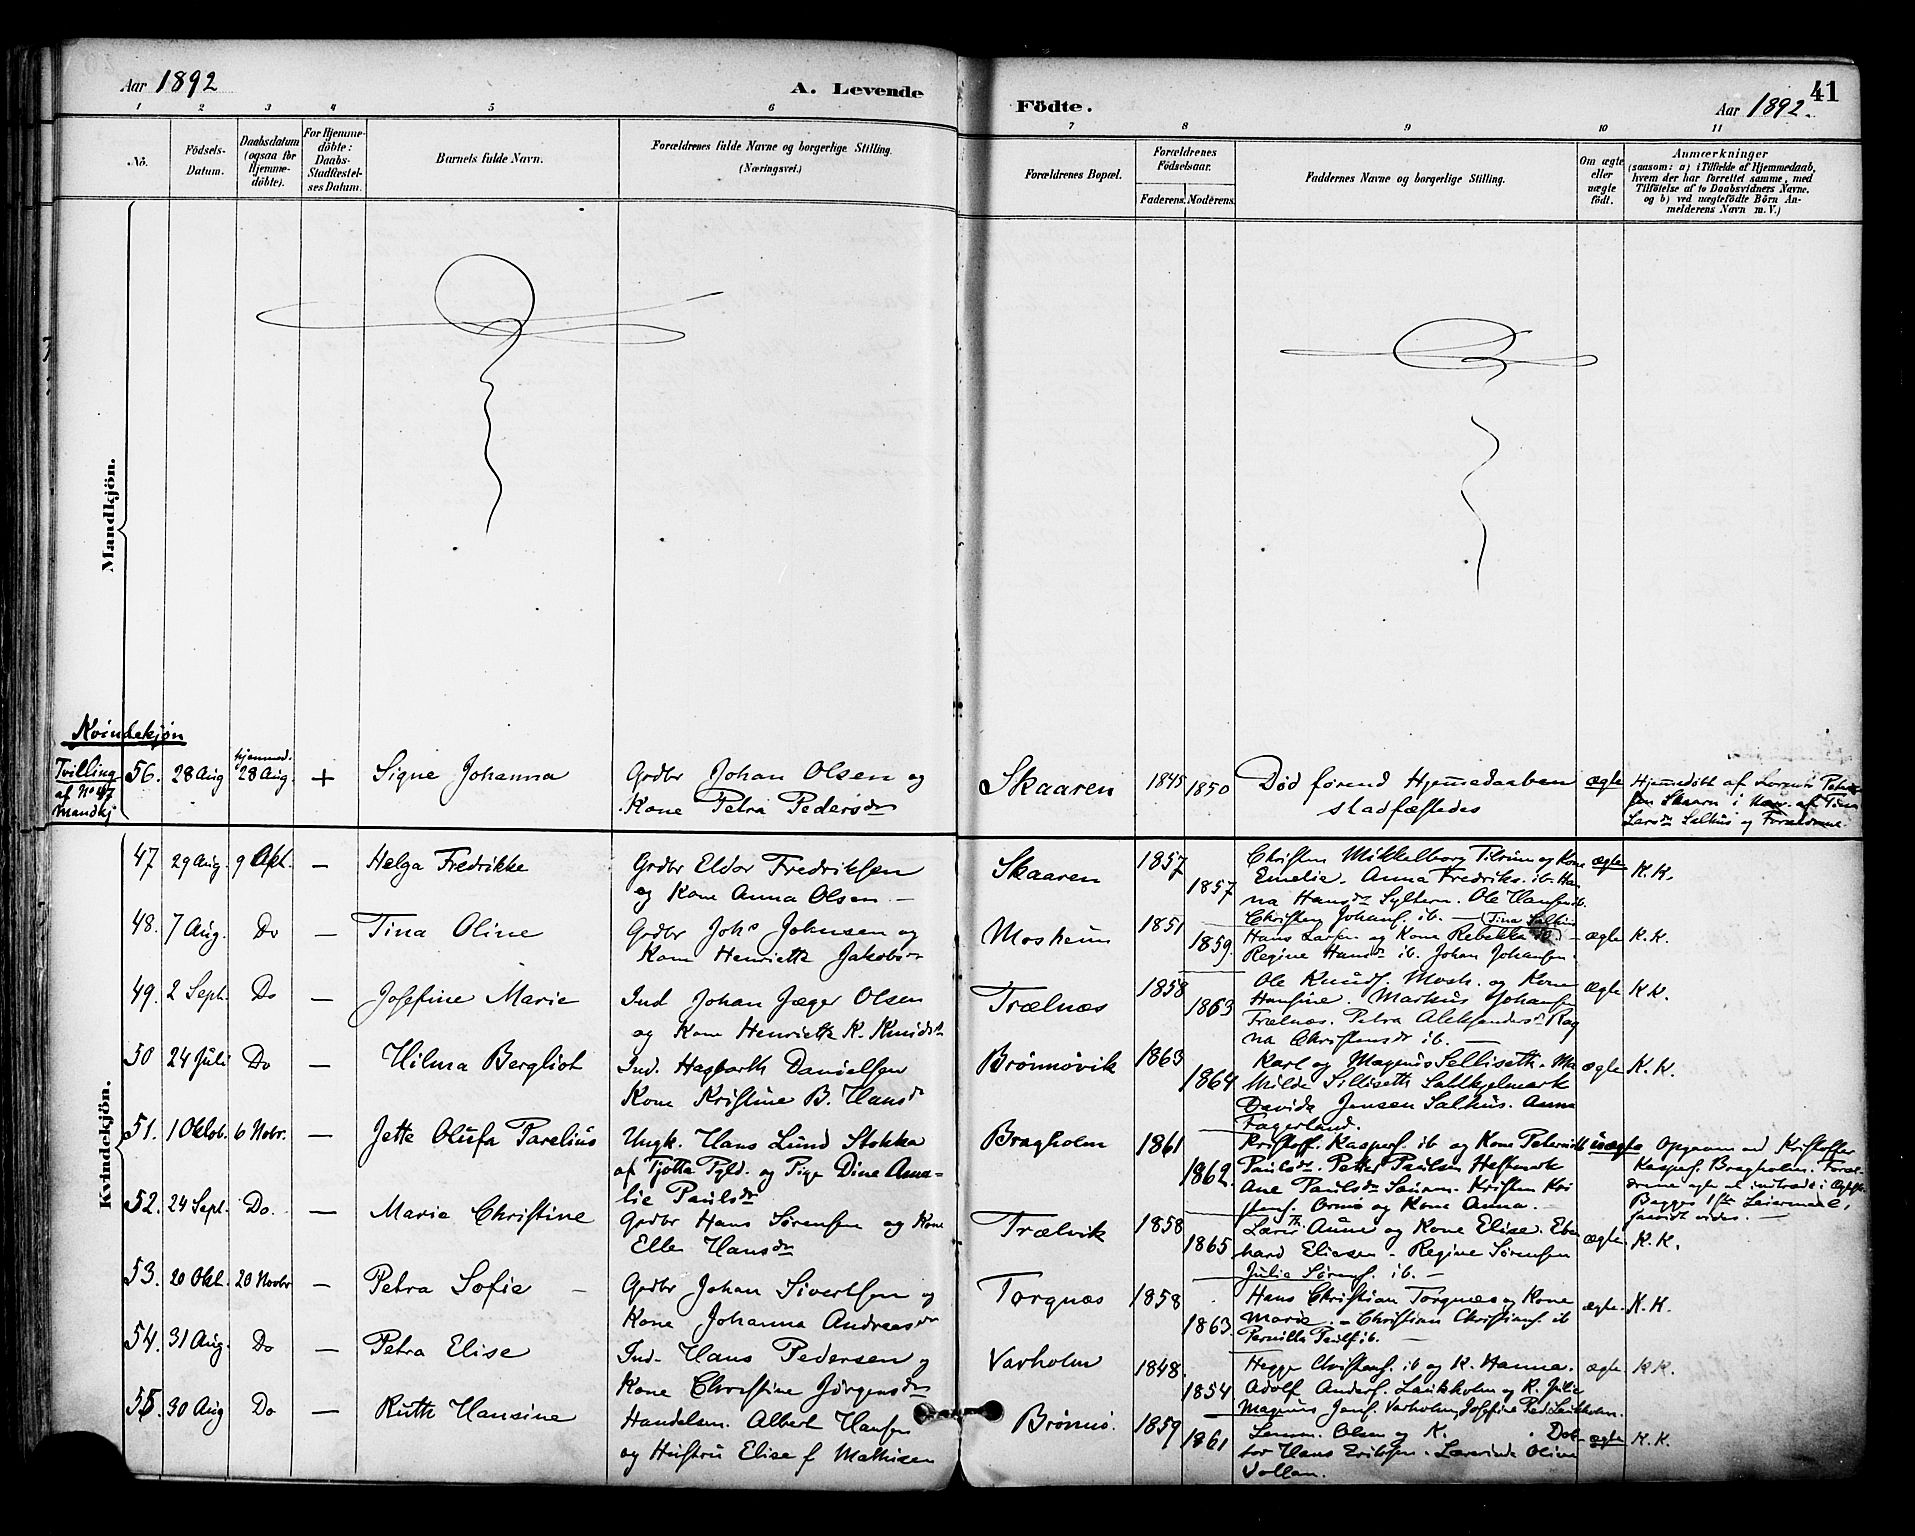 Aar 1892
A. Levende
1 2 3 4 5 6
No.
Födsels-
Datum.
Daabsdatum
(ogsaa for
Hjemme-
döbte).
For Hjemme-
döbte:
Daabs-
Stadfæstel-
ses Datum.
Barnets fulde Navn.
Forældrenes fulde Navne og borgerlige Stilling.
(Næringsvei.)
Mandkjön.
Kvindekjøn
Tvilling
af No 47
Mandkj
56. 28 Aug hjemmed. 28 Aug. + Signe Johanna
Grdbr Johan Olsen og
Kone Petra Pedersdr
Kvindekjön.
47 29 Aug. 9 Okt. — Helga Fredrikke
Grdbr Eldor Fredriksen
og Kone Anna Olsen. —
48. 7 Aug. Do — Tina Oline
Grdbr Johs Johnsen og
Kone Henriette Jakobsdr
49. 2 Sept. Do — Josefine Marie
Ind Johan Jæger Olsen
og Kone Henriette K. Knudsdr
50 24 Juli Do — Hilma Bergliot
Ind. Hagbarth Danielsen
Kone Kristine B. Hansdr
51. 1 Oktob. 6 Nobr. — Jette Olufa Parelius
Ungk. Hans Lund Stokka
af Tjøtta Pgld. og Pige Dine Ama-
lie Paulsdr
52. 24 Sept. Do. — Marie Christine
Grdbr Hans Sørensen og Kone
Ellen Hansdr
53. 20 Okt. 20 Novbr — Petra Sofie —
Grdbr Johan Sivertsen og
Kone Johanna Andreasdr
54. 31 Aug. Do — Petra Elise
Ind. Hans Pedersen og
Kone Christine Jørgensdr
55 30 Aug Do — Ruth Hansine
Handelsm. Albert Hansen
og Hustru Elise f Mathisen
Födte.
Aar 1892.
41
7 8 9 10 11
Forældrenes Bopæl.
Forældrenes
Födselsaar.
Faderens. Moderens.
Faddernes Navne og borgerlige Stilling.
Om ægte
eller
uægte
födt.
Anmærkninger
(saasom: a) i Tilfælde af Hjemmedaab,
hvem der har forrettet samme, med
Tilföielse af to Daabsvidners Navne.
og b) ved uægtefödte Börn An-
melderens Navn m. V.)
Skaaren 1845 1850
Død førend Hjemmedaaben
stadfæstedes
ægte
Hjemmedøbt af Lorents Peter-
sen Skaarn i Nærv. af Tina
Larsdr Salhus og Forældrene
Skaaren 1857 1857
Christen Mikkelborg Tilrum og Kone
Emelie. Anna Fredriks. ib. Han-
na Hansdr Syltern. Ole Hansen ib.
Christen Johans. ib. —
ægte K.K.
Mosheim 1851 1859.
Hans Larsen og Kone Rebekka
Regine Hansdr ib. Johan Johansen.
ægte K.K.
Trælnæs 1858 1863
Ole Knuds. Mosh. og Kone
Hansine. Markus Johansen
Trælnæs. Petra Aleksandersdr Rag
na Christensdr ib. —
ægte K.K.
Brönnövik 1863 1864
Karl og Magnus Sellisseth. Ma
Davida Jensen Salhus. Anna
Fagerland.
ægte K.K.
Bragholm 1861 1862.
Kristoff. Kaspers. ib og Kone
Paulsdr. Petter Paulsen Hestmark
Ane Paulsdr Kristen Kri
stens. og Kone Anna.
uægte
Opgivm. ved Kristoffer
Kaspers. Bragholm. Foræl-
drene agte at indtræde i Ægtest.
Begges 1ste Leiermaal,
saavidt vides. —
Trælvik 1858 1865
Aune og Kone Elise. Eber
hard Eliesen. Regine Sørensen
Julie Sørens. ib. —
ægte K.K.
Torgnæs 1858 1863.
Hans Christian Torgnæs og Kone
Marie. — Christian Christians. ib
Pernille ib. —
ægte. K.K.
Varholm 1848. 1854
Hegge Christens. ib og K. Hanna.
Adolf Anders. Laukholm og K. Julie
Magnus Jens. Varholm, Josefine Laukholm.
ægte K.K.
Brönnö. 1859 1861
Olsen og K. Dok-
tor Hans Eriksen. Lærerinde Oline
Vollan.
ægte K.K.